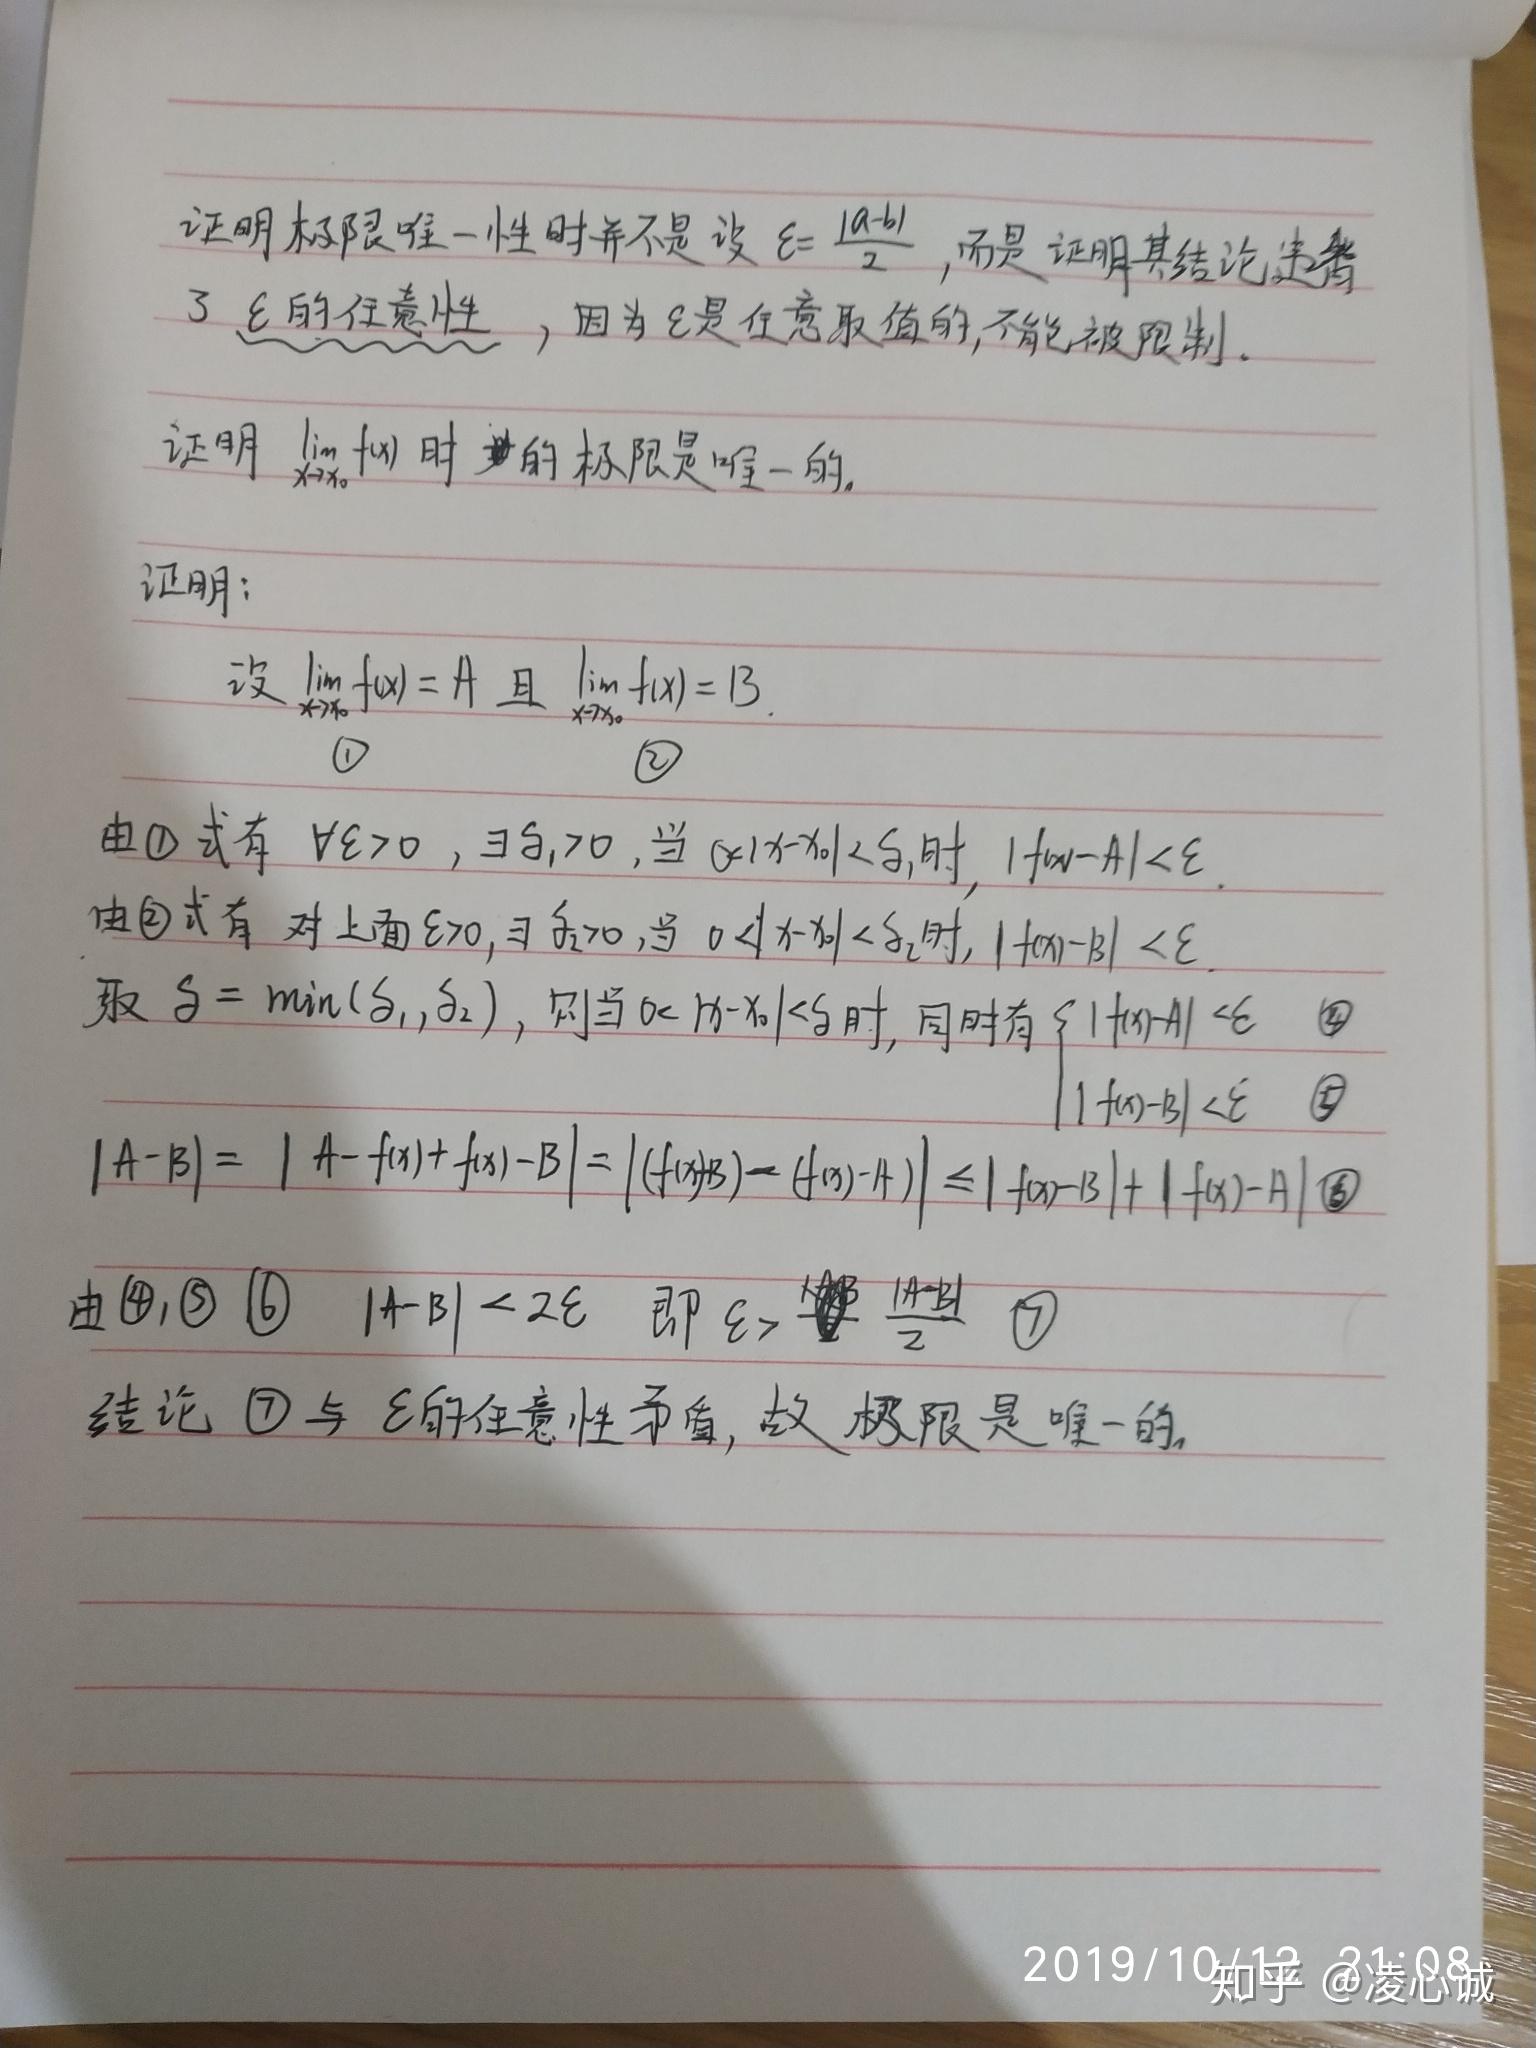 证明极限唯一性时并不是设 ε=|a-b|/2,而是证明其结论违背
了 ε的任意性,因为ε是任意取值的,不能被限制.
证明 lim f(x) 时 的极限是唯一的.
x→x₀
证明:
设 lim f(x)=A 且 lim f(x)=B.
x→x₀ x→x₀
① ②
由①式有 ∀ε>0,∃δ₁>0,当 0<|x-x₀|<δ₁时,|f(x)-A|<ε.
由②式有 对上面ε>0,∃δ₂>0,当 0<|x-x₀|<δ₂时,|f(x)-B|<ε.
取 δ=min(δ₁,δ₂),则当0<|x-x₀|<δ时,同时有{|f(x)-A|<ε ④
|f(x)-B|<ε ⑤
|A-B|=|A-f(x)+f(x)-B|=|(f(x)-B)-(f(x)-A)|≤|f(x)-B|+|f(x)-A| ⑥
由④,⑤ ⑥ |A-B|<2ε 即 ε>|A-B|/2 ⑦
结论 ⑦与 ε的任意性矛盾,故 极限是唯一的.
2019/10/12 21:08
知乎 @凌心诚